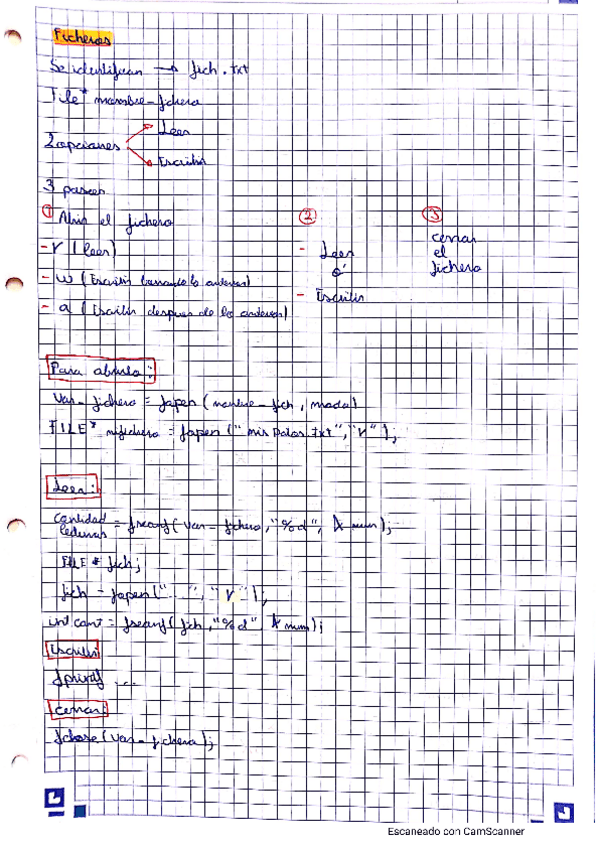 Ficheros
Se identifican → fich.txt
File* nombre-fichero
2 opciones
Leer
Escribir
3 pasos
① Abrir el fichero
- r (leer)
- w (Escribir borrando lo anterior)
- a (Escribir despues de lo anterior)
②
- Leer
o
- Escribir
③
cerrar
el
fichero
Para abrirlo:
Var_fichero = fopen (nombre_fich, modo)
FILE* mifichero = fopen ("misDatos.txt", "r");
Leer:
cantidad lecturas = fscanf(var_fichero, "%d", &num);
FILE * fich;
fich = fopen("...", "r");
int cant = fscanf(fich, "%d", &num);
Escribir
fprintf ...
cerrar:
fclose(var_fichero);
Escaneado con CamScanner